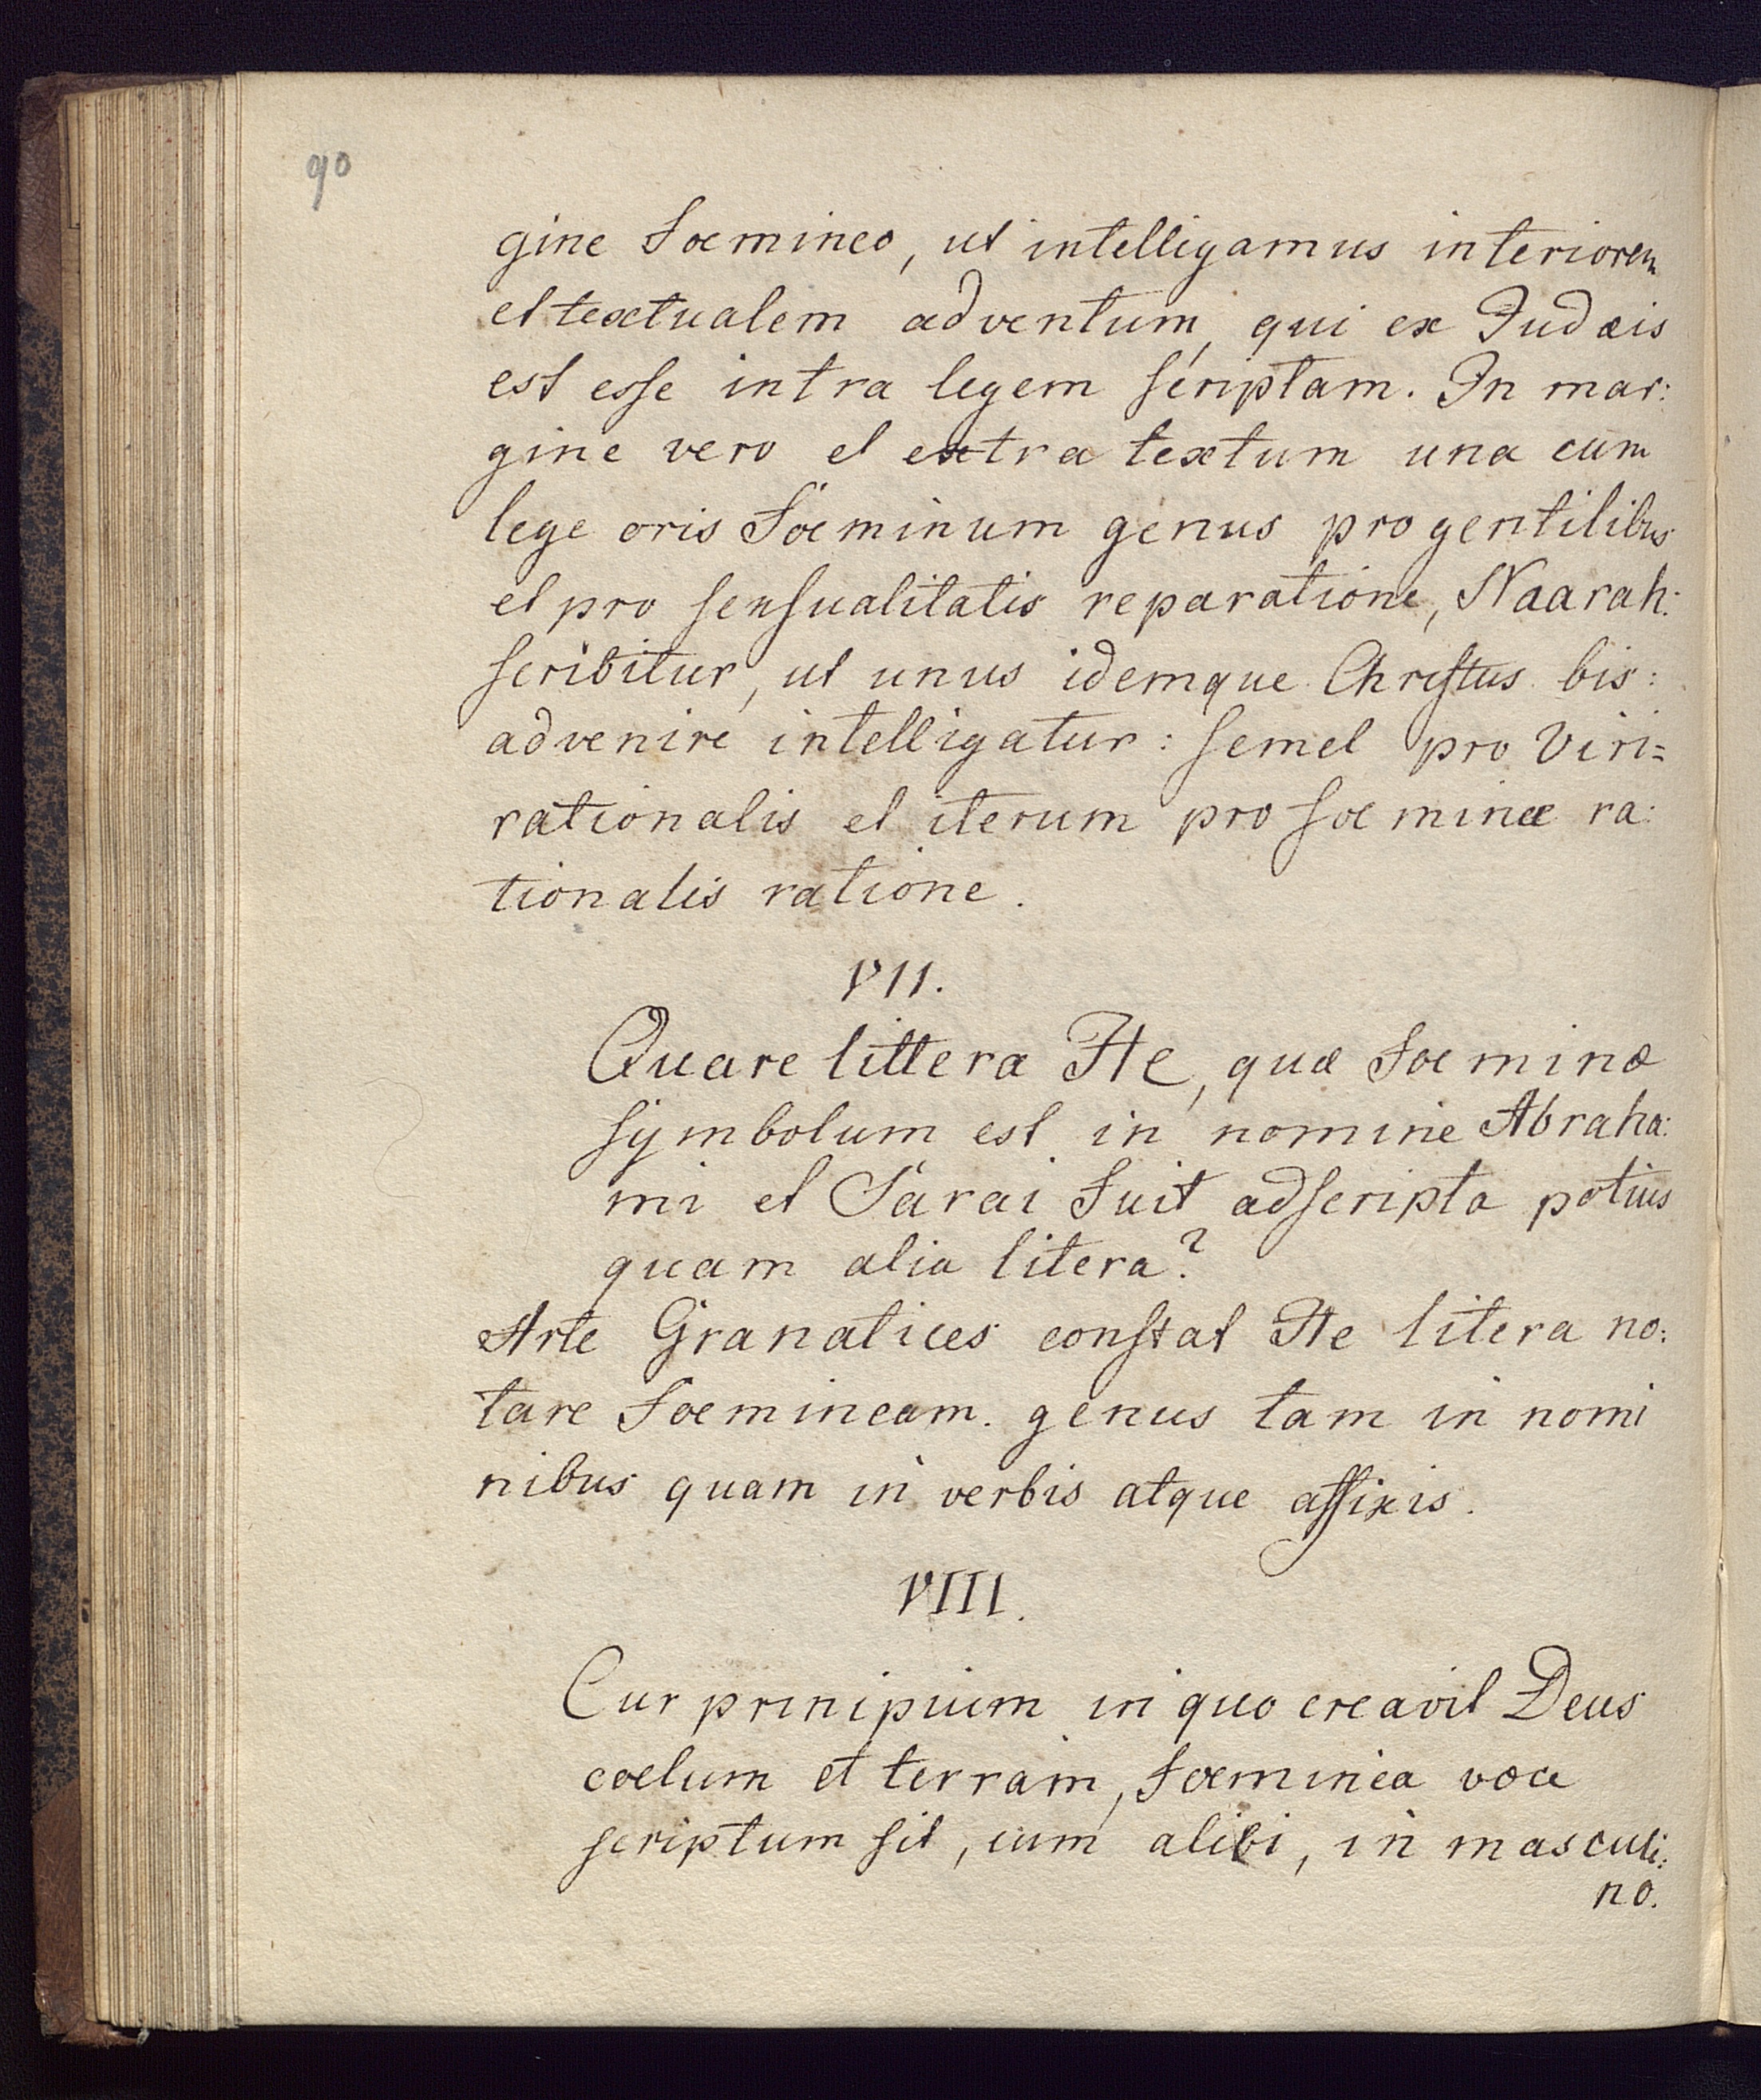 90
gine foemineo, ut intelligamus interiorem
et textualem adventum, qui ex Judæis
est esse intra legem scriptam. In mar:
gine vero et extra textum una cum
lege oris foeminum genus pro gentilibus
et pro sensualitatis reparatione, Naarah:
scribitur, ut unus idemque Christus bis:
advenire intelligatur: semel pro Viri=
rationalis et iterum pro foeminæ ra:
tionalis ratione.
VII.
Quare littera He, quæ foeminæ
symbolum est in nomine Abraha:
mi et Sarai fuit adscripta potius
quam alia litera?
Arte Granatices constat He litera no:
tare foemineam. genus tam in nomi
nibus quam in verbis atque affixis.
VIII.
Cur prinipium in quo creavit Deus
coelum et terram, foeminea voce
scriptum sit, cum alibi, in masculi:
no.